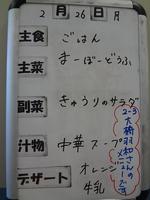 2月26日月
主食 ごはん
主菜 まーぼーどうふ
副菜 きゅうりのサラダ
汁物 中華スープ
デザート オレンジ
牛乳
2-3
大楠
羽和さんの
メニューです